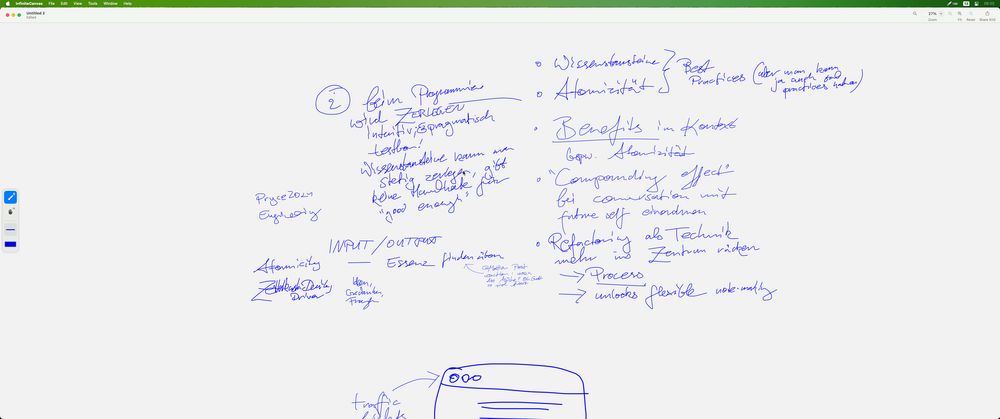 InfiniteCanvas File Edit View Tools Window Help
Untitled 2
Edited
27%
Zoom Fit Reset Share RSS
② beim Programmieren
wird ZERLEGEN
intuitiv, pragmatisch
testbar!
Wissensbausteine kann man
stetig zerlegen, gibt
keine Handhabe für
"good enough"
Pryce2021
Engineering
INPUT/OUTPUT
Atomicity — Essenz finden
Driven
Ideen,
Gedanken,
Fragen
• Wissensbausteine
• Atomizität
Best
Practices (aber man kann
ja auch
practices haben)
• Benefits im Kontext
bspw. Atomizität
• "Compounding effect"
bei conversation mit
future self einordnen
• Refactoring als Technik
mehr ins Zentrum rücken
→ Process
→ unlocks flexible note-making
traffic
lights